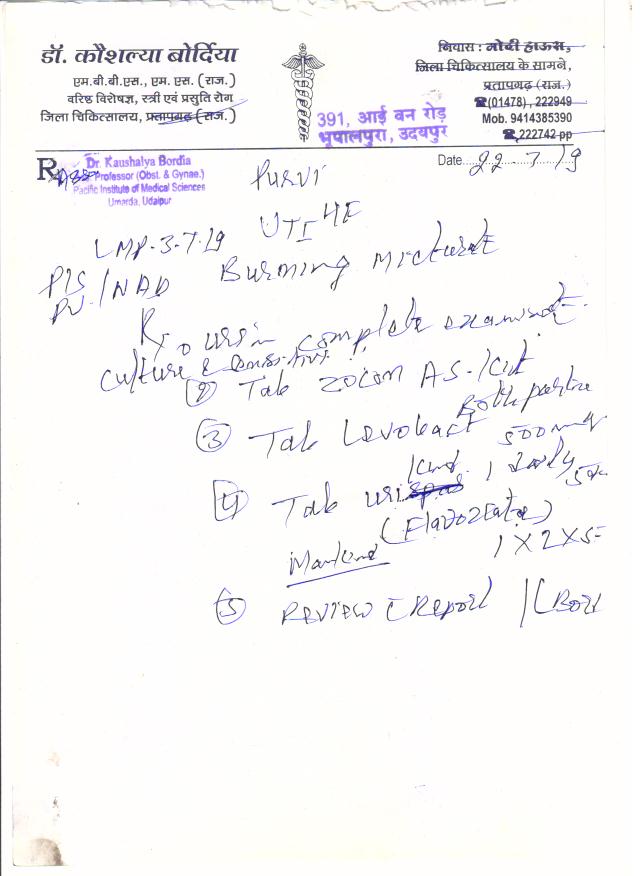 डॉ. कौशल्या बोर्दिया
एम.बी.बी.एस., एम. एस. (राज.)
वरिष्ठ विशेषज्ञ, स्त्री एवं प्रसुति रोग
जिला चिकित्सालय, प्रतापगढ़ (राज.)
391, आई वन रोड़
भूपालपुरा, उदयपुर
निवास : मोदी हाऊस,
जिला चिकित्सालय के सामने,
प्रतापगढ़ (राज.)
(01478), 222949
Mob. 9414385390
222742 pp
Rx
Dr. Kaushalya Bordia
Professor (Obst. & Gynae.)
Pacific Institute of Medical Sciences
Umarda, Udaipur
Date 22.7.19
Purvi
UTI
LMP-3-7-19
Burning Micturat
P/S
PV/NAD
Rx ① urin complete examinat
culture &
② Tab zocom AS-1Cit
Both partne
③ Tab Levobact 500mg
1 daily
④ Tab urispas
(Flavozeate)
Mankind 1X2X5
⑤ REVIEW C Report